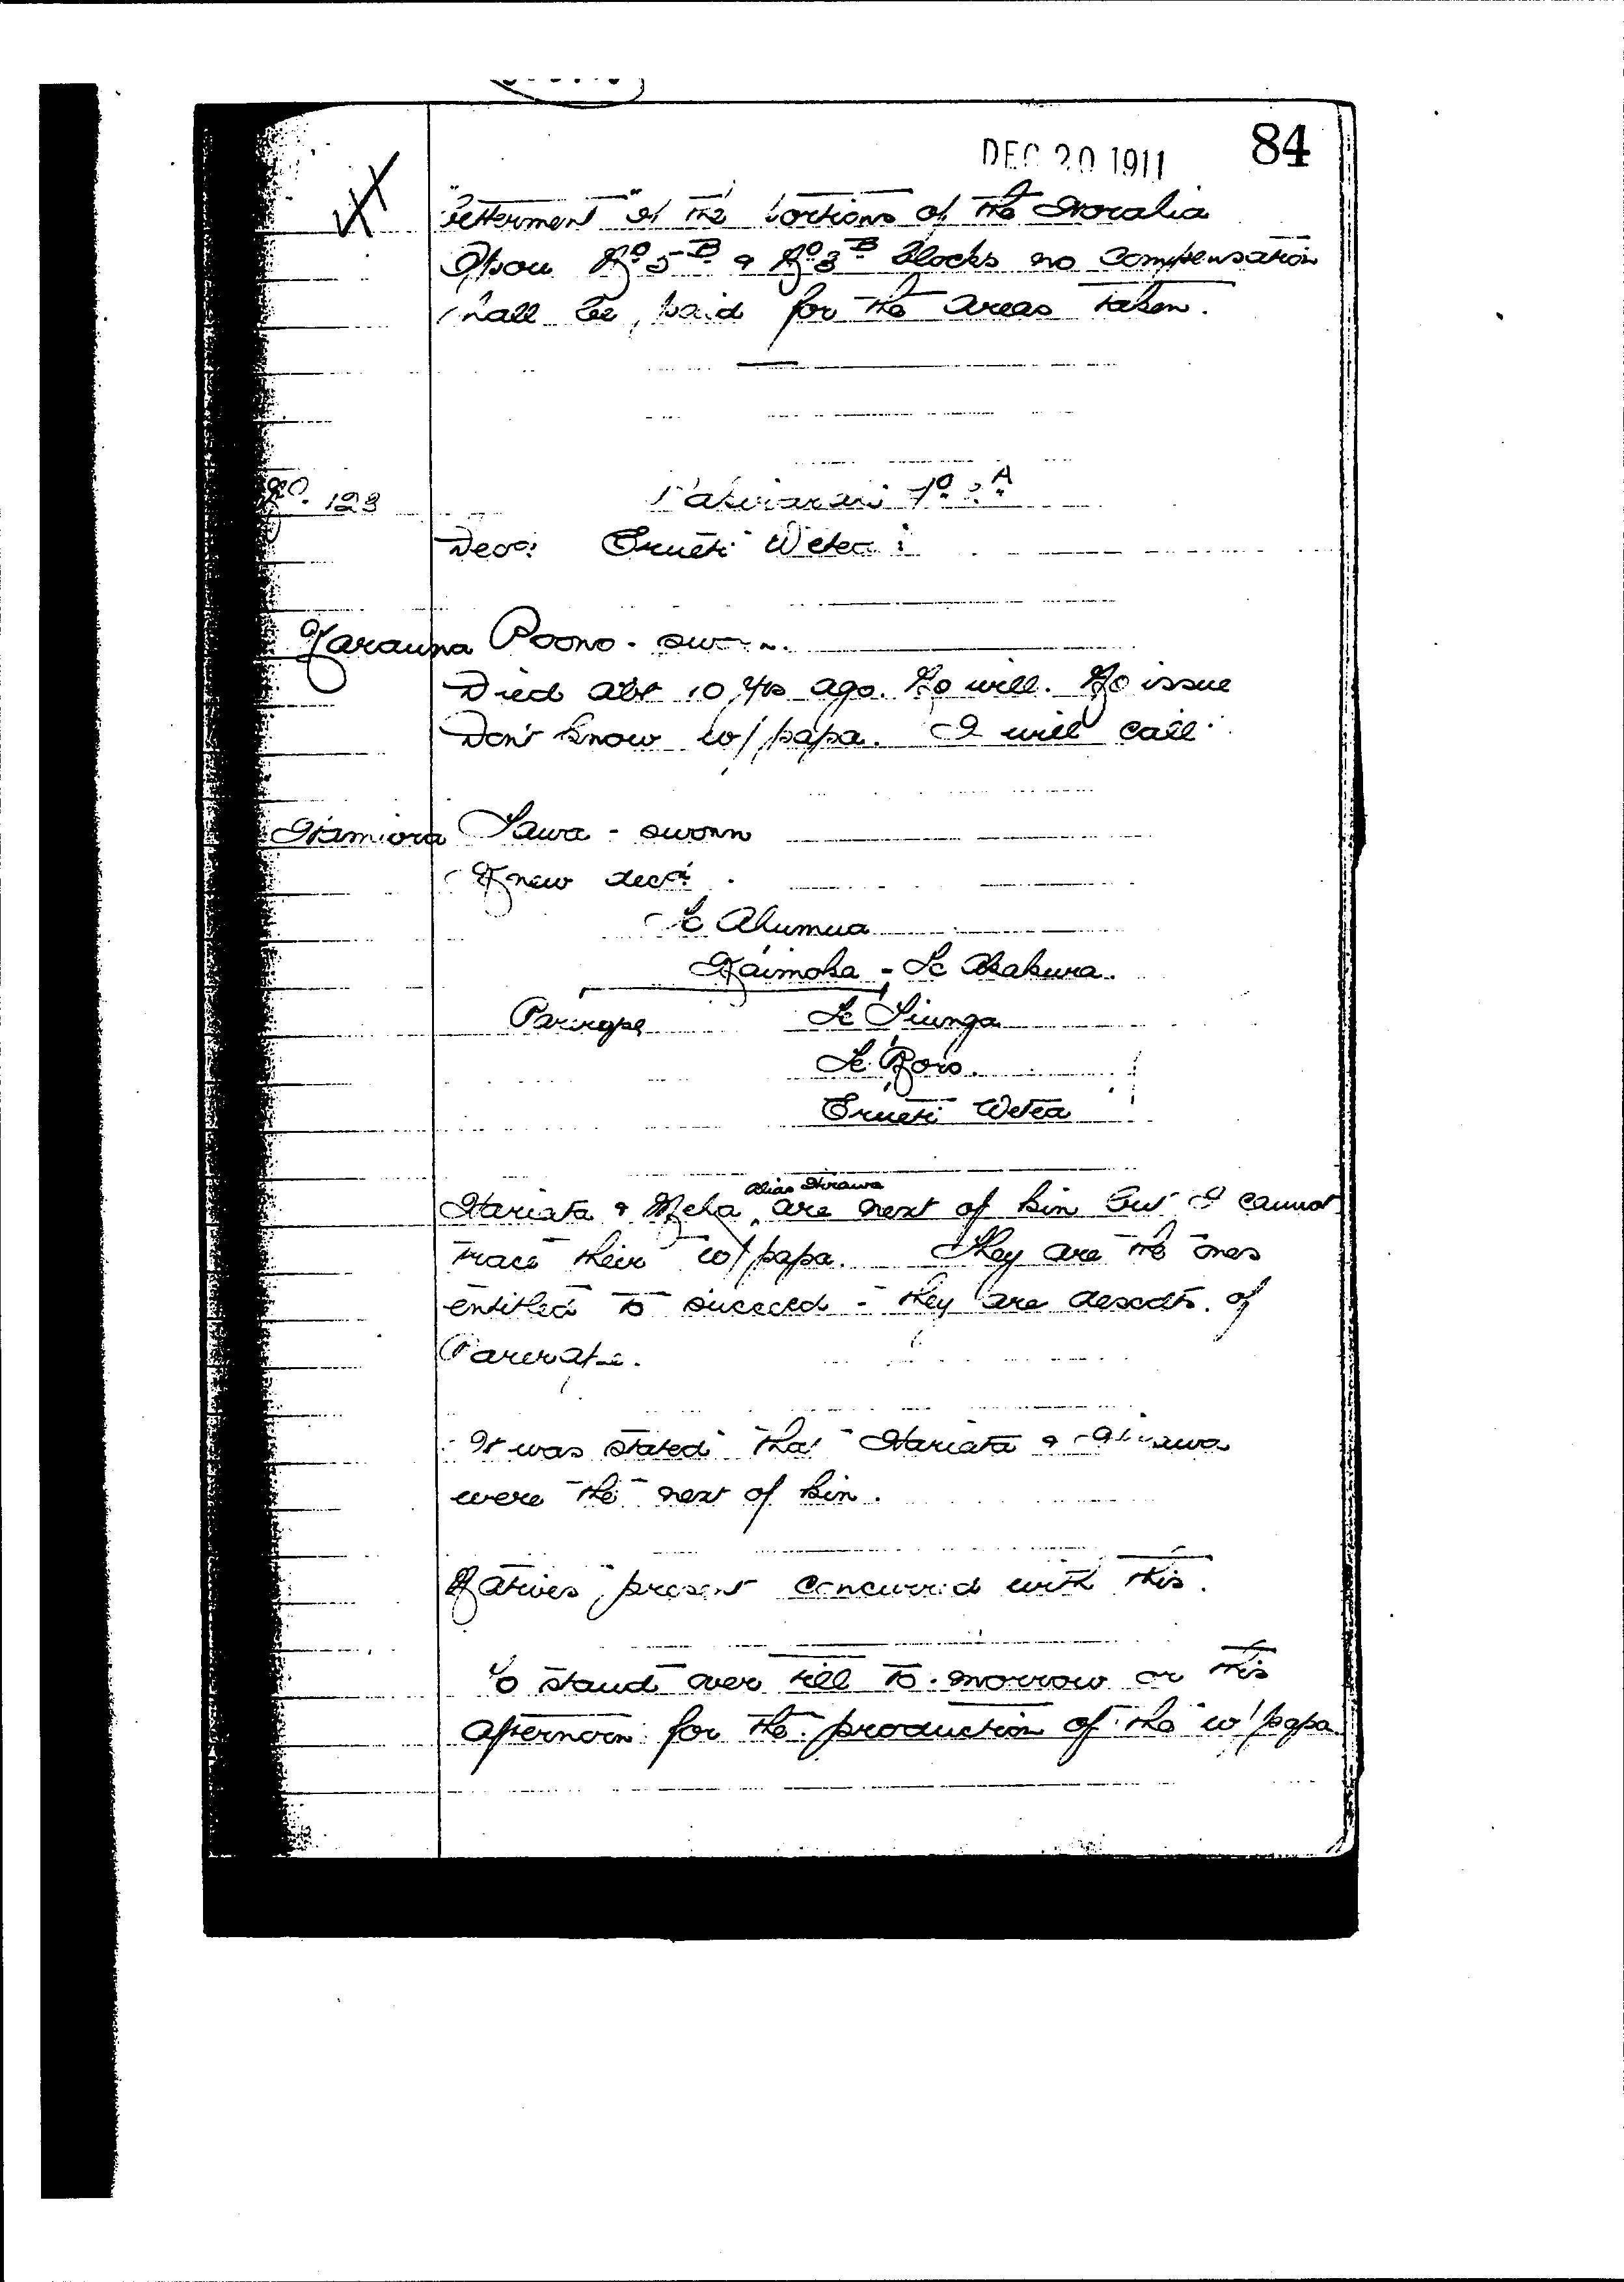 DEC 20 1911
84
"betterment" of the portions of the
No 5B & No 3B Blocks no compensation
shall be paid for the areas taken.
No. 123
No 2A
Decd: Erueti Wetea
Karauna Poono - sworn.
Died abt 10 yrs ago. No will. No issue
Don't know w/papa. I will call
Hamiora Tawa - sworn
Knew decd.
Te Ahumua
Kaimoka - Te Akakura.
Parerape Te Tiunga
Te Roro.
Erueti Wetea
alias Hirawa
Hariata & Meha are next of kin but I cannot
trace their w/papa. They are the ones
entitled to succeed - they are descdts. of
Parerape.
It was stated that Hariata & Hirawa
were the next of kin.
Natives present concurred with this.
To stand over till to-morrow or this
afternoon for the production of the w/papa